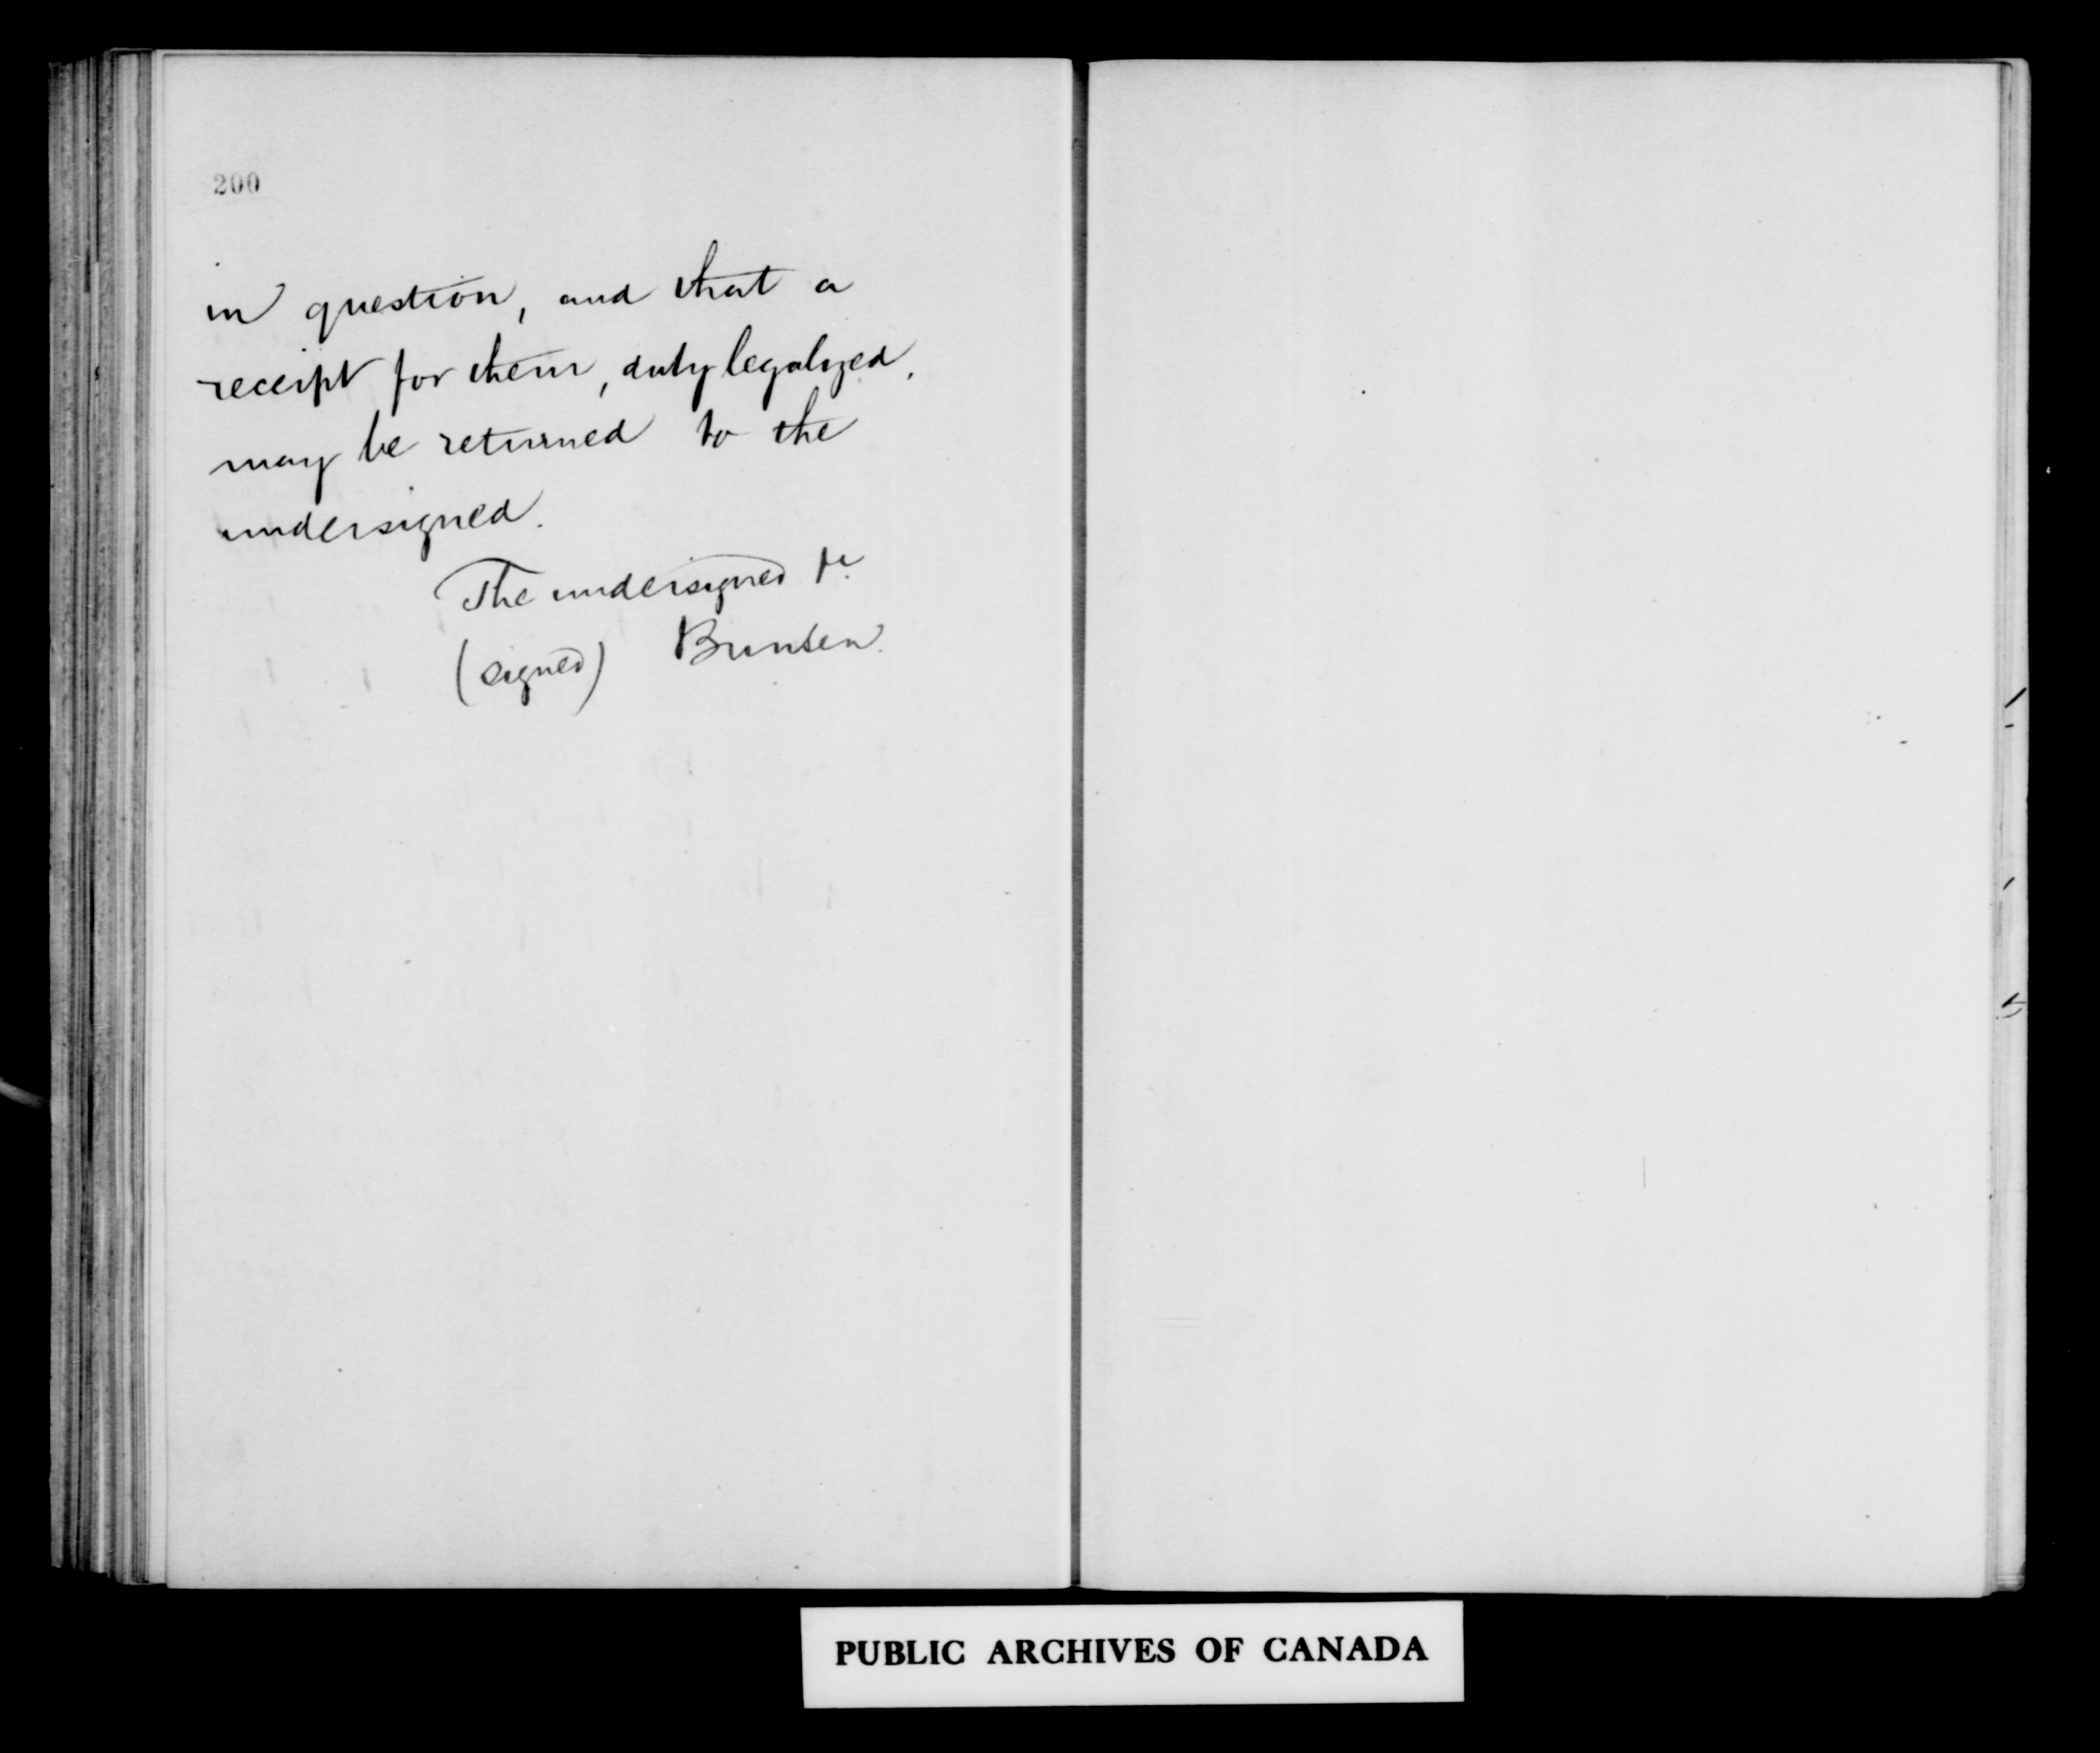 200
in question, and that a
receipt for them, duly legalized,
may be returned to the
undersigned.
The undersigned &c.
(signed) Bunsen.
PUBLIC ARCHIVES OF CANADA